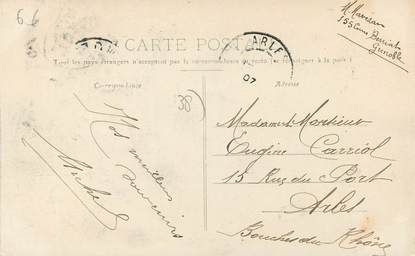 66
M. Mavelan
155 Cours Berriat
Grenoble
CARTE POSTALE
ARLES
07
Tous les pays étrangers n'acceptent pas la correspondance au recto. (Se renseigner à la poste)
Correspondance
Adresse
38
Nos meilleurs
souvenirs
Michel
Madame & Monsieur
Eugène Carriol
15 Rue du Port
Arles
Bouches du Rhône